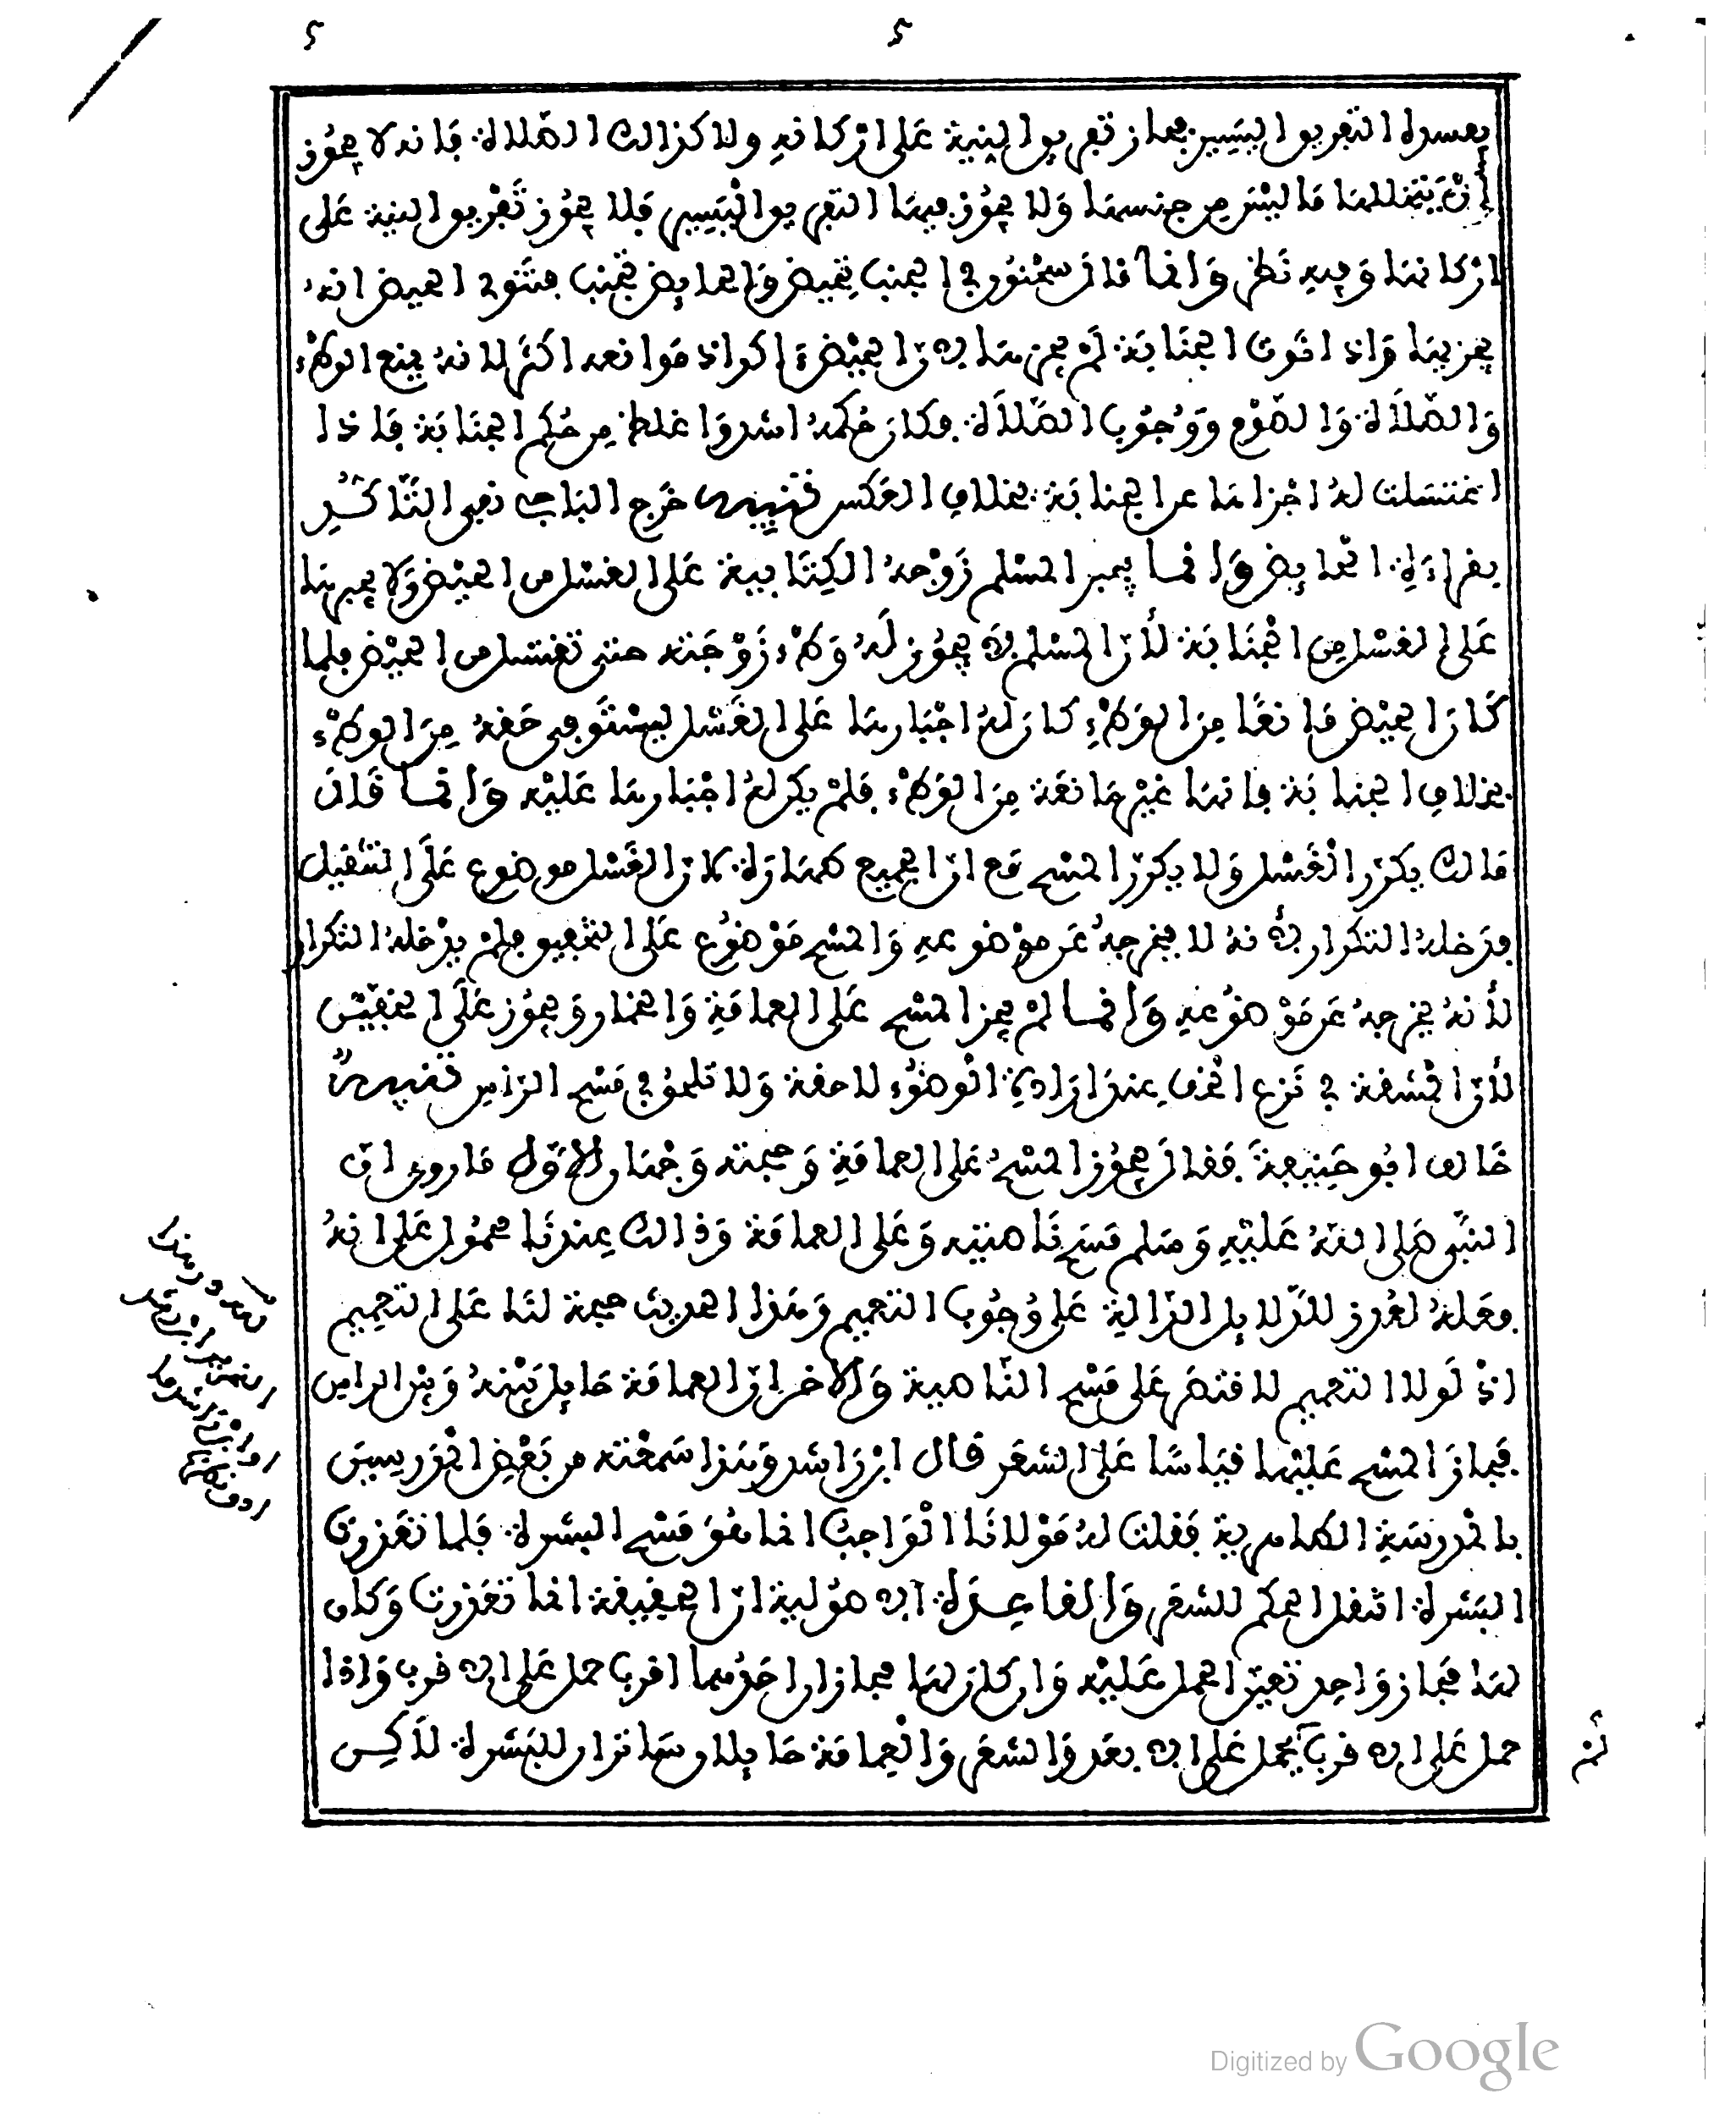 يفسده التفريق اليسير فجاز تفريق النية على اركانه ولا كذالك الصلاة فانه لا يجوز
أن يتخللها ما ليس من جنسها ولا يجوز فيها التفريق اليسير فلا يجوز تفريق النية على
اركانها وفيه نظر وانما قال سحنون في الجنب تحيض والحايض تجنب فتنوي الحيض انه
يجزيها واذا نوت الجنابة لم يجزها لان الحيض اكد اذ موانعه اكثر لانه يمنع الوطء
والصلاة والصوم ووجوب الصلاة فكان حكمه اشد واغلظ من حكم الجنابة فاذا
اغتسلت له اجزاها عن الجنابة بخلاف العكس تنبيه خرج الباجي نفي التاكد
بقراءة الحايض وانما يجبر المسلم زوجه الكتابية على الغسل من الحيض ولا يجبرها
على الغسل من الجنابة لأن المسلم لا يجوز له وطء زوجته حتى تغتسل من الحيض فلما
كان الحيض مانعا من الوطء كان له اجبارها على الغسل ليستوفي حقه من الوطء
بخلاف الجنابة فانها غير مانعة من الوطء فلم يكن له اجبارها عليه وانما قال
مالك يكرر الغسل ولا يكرر المسح مع ان الجميع طهارة لان الغسل موضوع على التثقيل
فدخله التكرار لأنه لا يخرجه عن موضوعه والمسح موضوع على التخفيف فلم يدخله التكرار
لأنه يخرجه عن موضوعه وانما لم يجز المسح على العمامة والخمار ويجوز على الخفين
لأن المشقة في نزع الخف عند ارادة الوضوء لاحقة ولا تلحق في مسح الراس تنبيه
خالف ابو حنيفة فقال يجوز المسح على العمامة وحجته وجهان الاول ما روي ان
النبي صلى الله عليه وسلم مسح ناصيته وعلى العمامة وذالك عندنا محمول على انه
فعله لعذر للدلايل الدالة على وجوب التعميم وهذا الحديث حجة لنا على التعميم
اذ لولا التعميم لاقتصر على مسح الناصية والاخر ان العمامة حايل بينه وبين الراس
فجاز المسح عليها قياسا على الشعر قال ابن راشد وهذا سمعته من بعض المدرسين
بالمدرسة الظاهرية فقلت له مولانا الواجب انما هو مسح البشرة فلما تعذرت
البشرة انتقل الحكم للشعر والقاعدة الاصولية ان الحقيقة اذا تعذرت وكان
لها مجاز واحد تعين الحمل عليه وان كان لها مجازان احدهما اقرب حمل على الاقرب واذا
حمل على الاقرب لم يحمل على الابعد والشعر والعمامة حايلان ساتران للبشرة لاكن
Digitized by Google